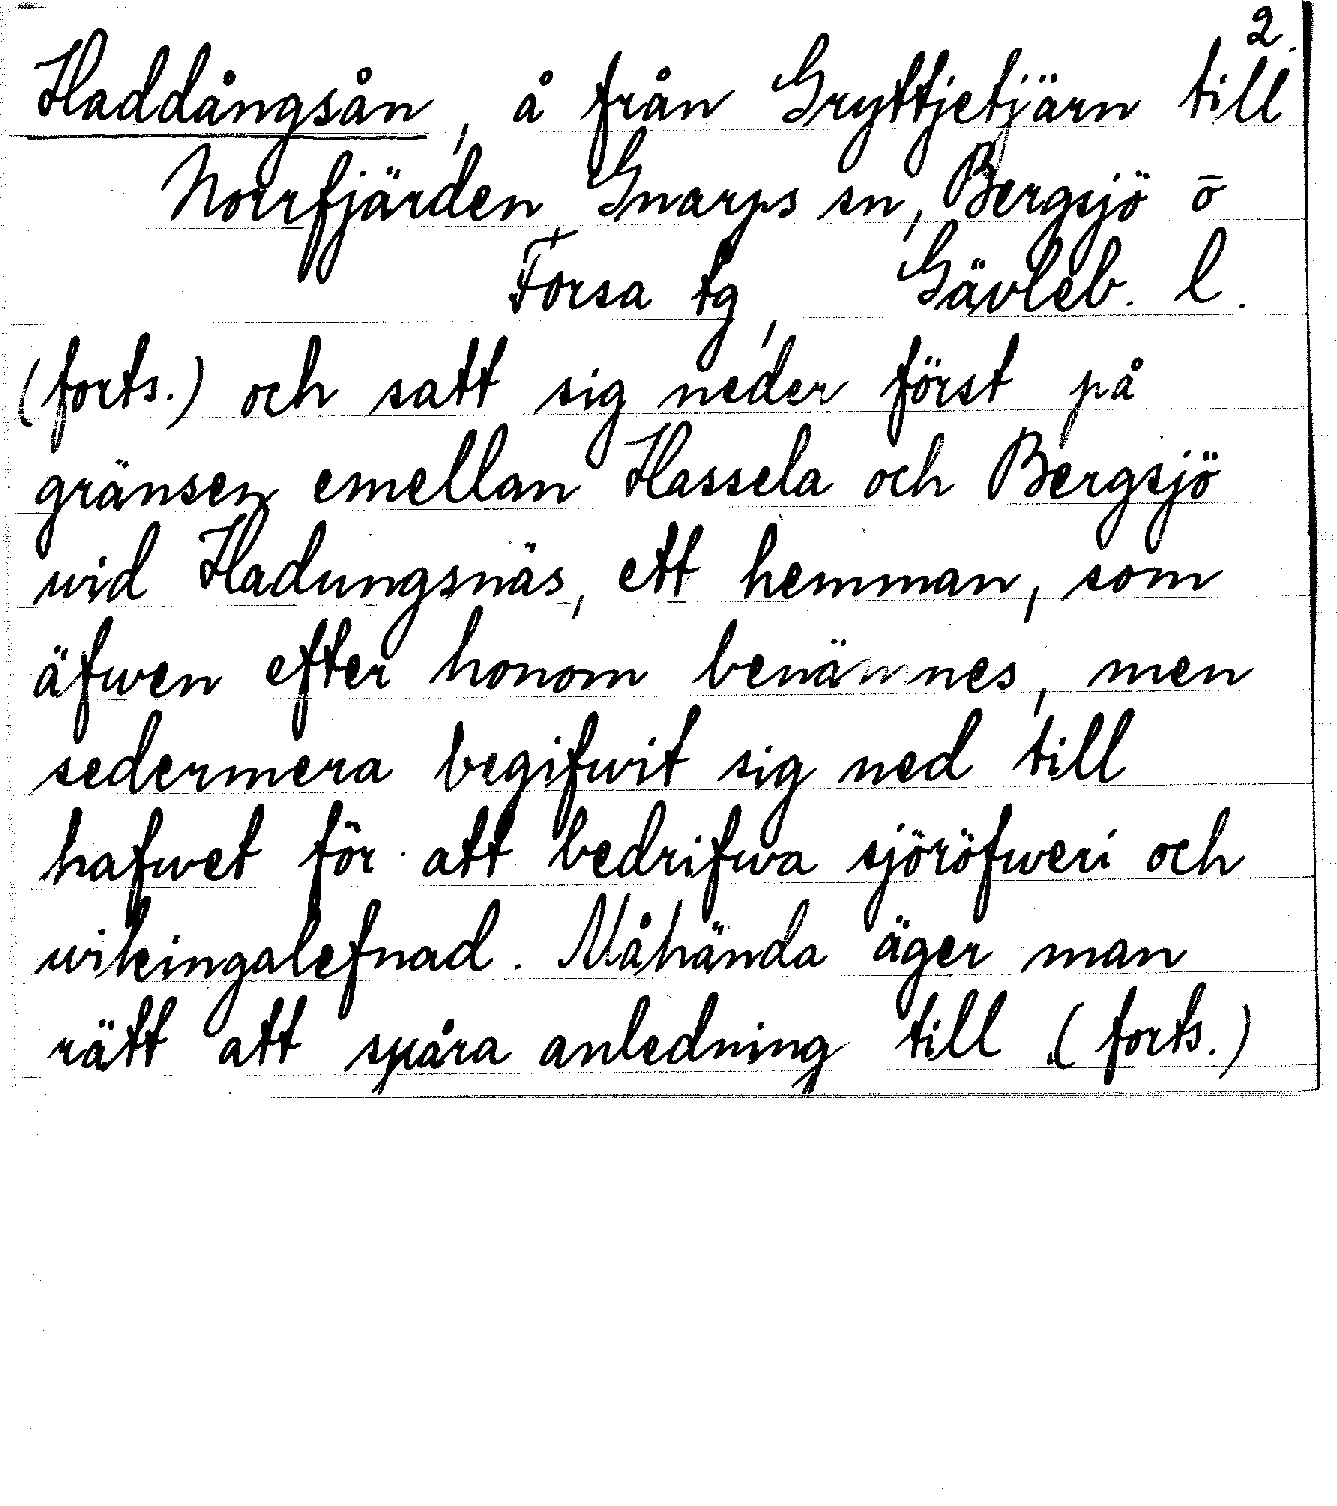 2.
Haddångsån, å från Gryttjetjärn till
Norrfjärden, Gnarps sn, Bergsjö o
Forsa tg, Gävleb. l.
(forts.) och satt sig neder först på
gränsen emellan Hassela och Bergsjö
wid Hadungsnäs, ett hemman, som
äfwen efter honom benämnes, men
sedermera begifwit sig ned till
hafwet för att bedrifwa sjöröfweri och
wikingalefnad. Måhända äger man
rätt att spåra anledning till (forts.)